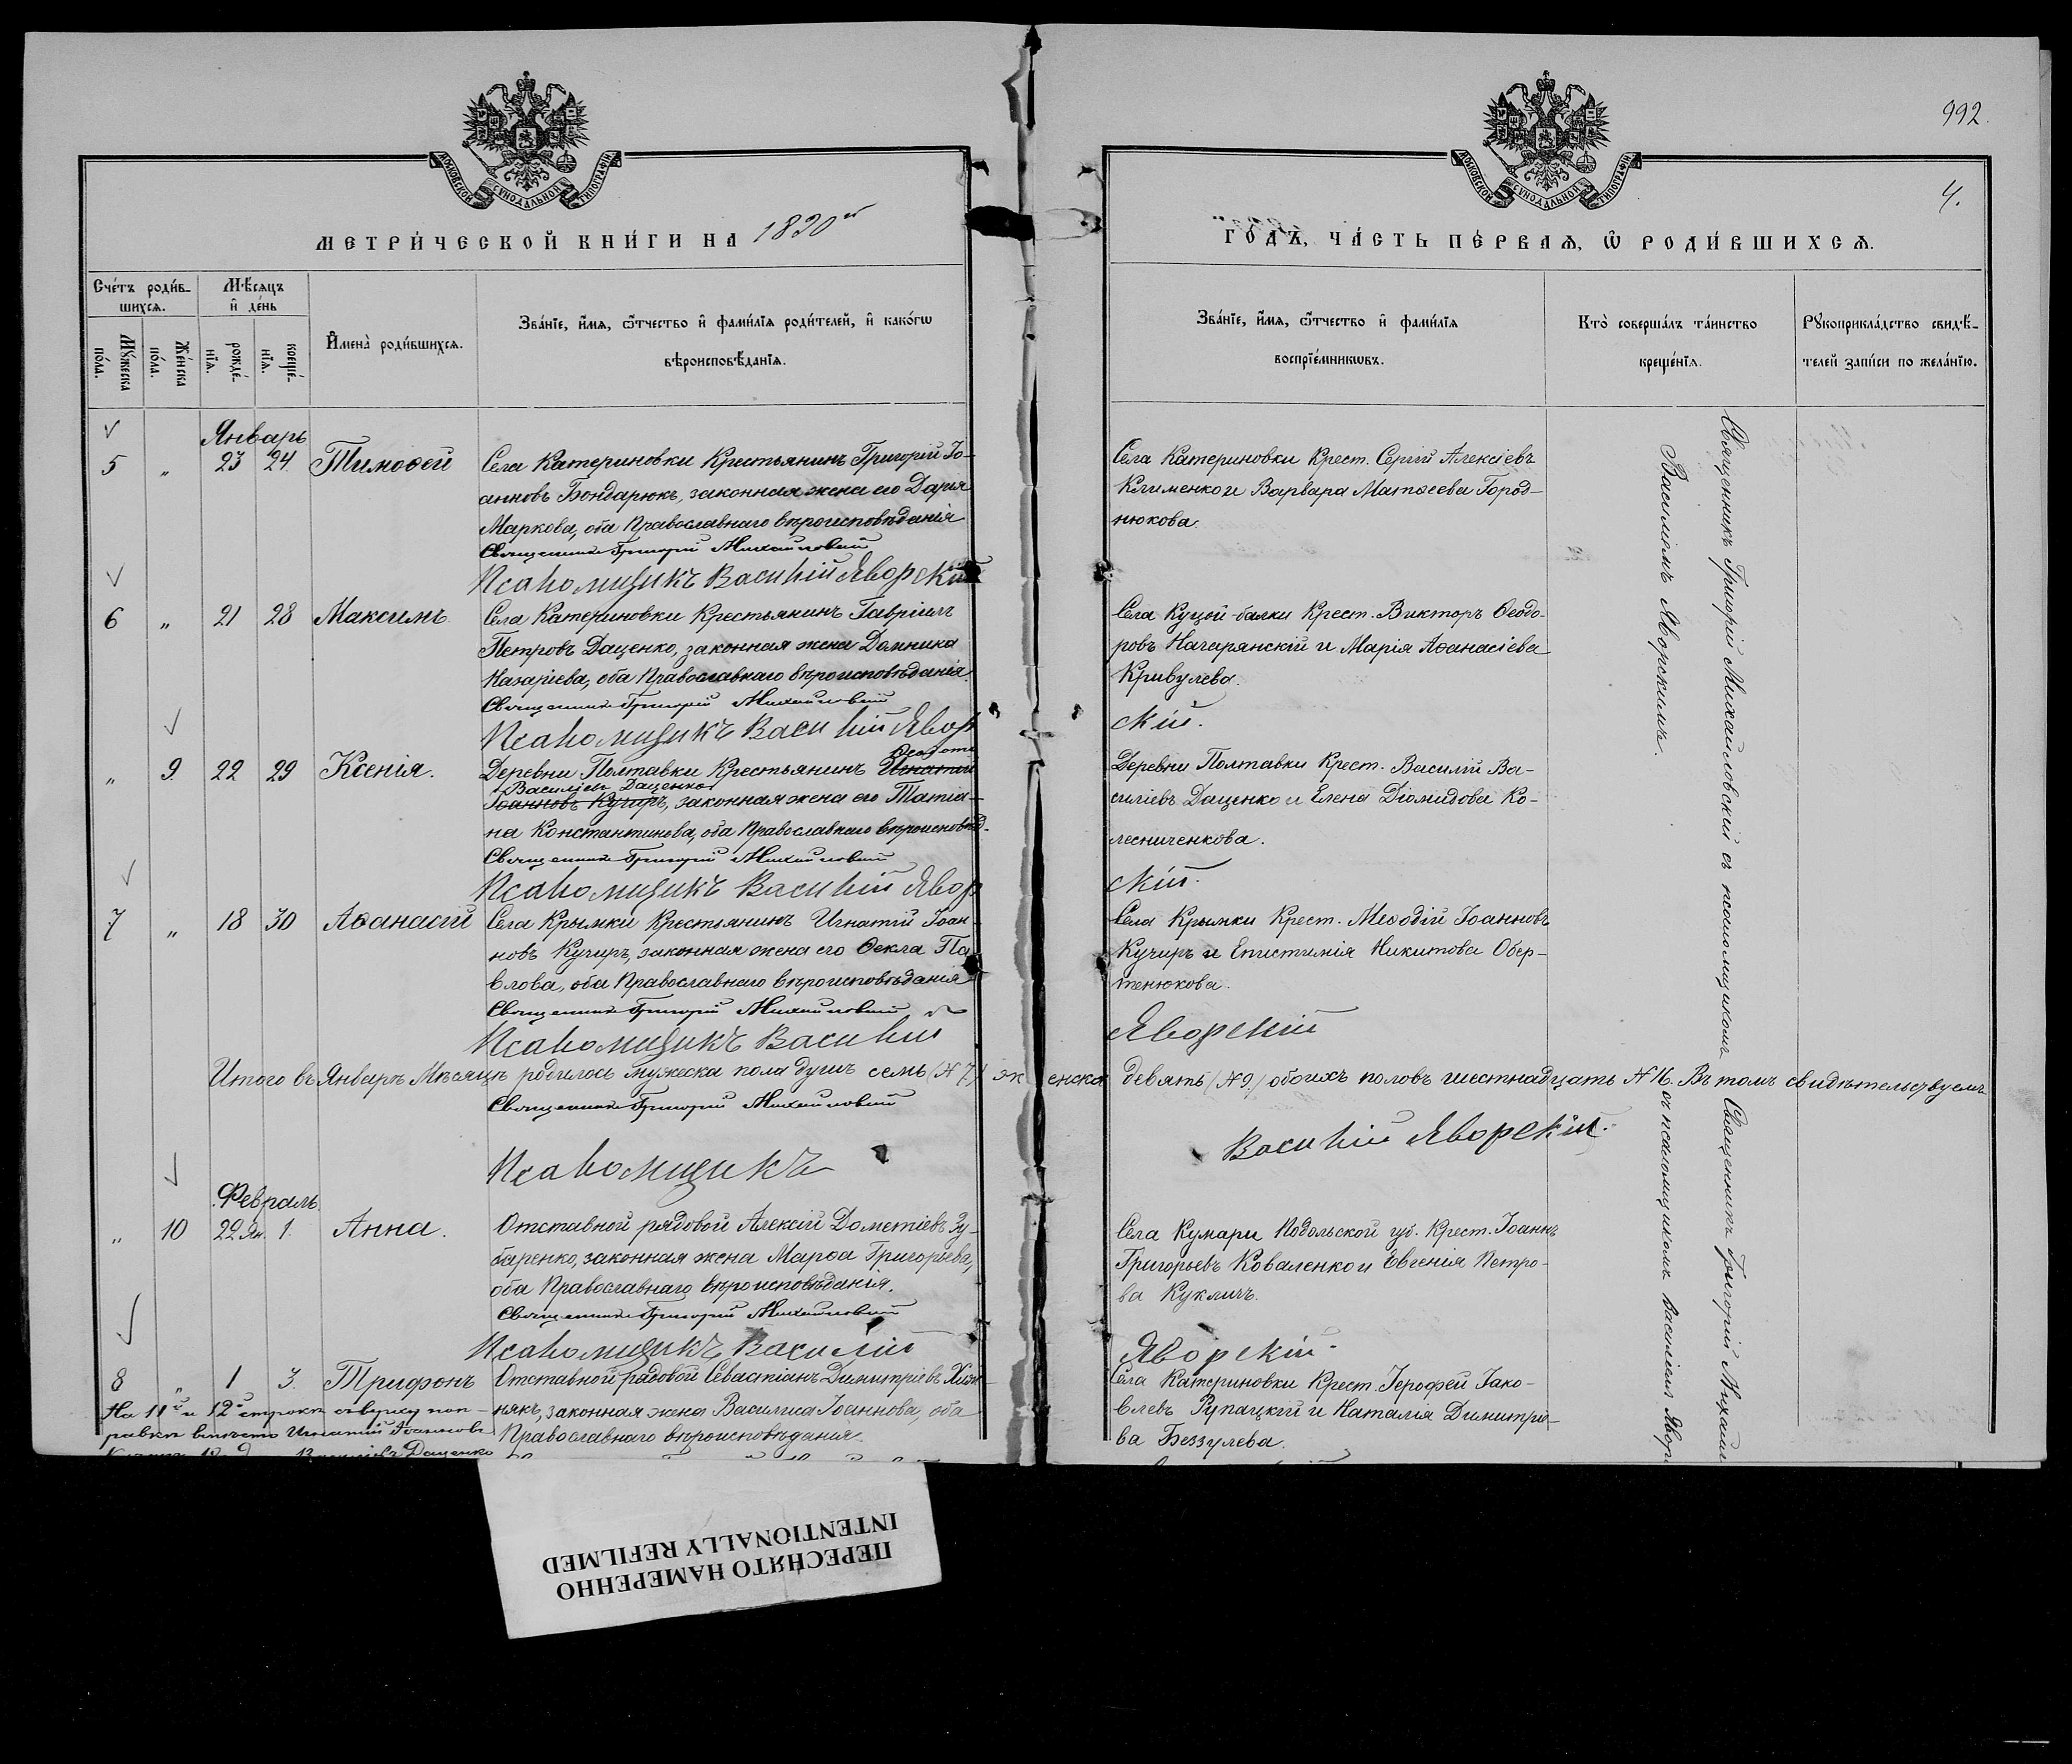 992.
4.
МОСКОВСКОЙ СѴНОДАЛЬНОЙ ТИПОГРАФІИ
МОСКОВСКОЙ СѴНОДАЛЬНОЙ ТИПОГРАФІИ
МЕТРИ́ЧЕСКОЙ КНИ́ГИ НА 1890й
ГОДЪ, ЧА́СТЬ ПЕ́РВАѦ, Ѡ РОДИ́ВШИХСѦ.
Сче́тъ роди́в-
шихсѧ.
Мꙋ́жеска по́ла.
Же́нска по́ла.
Мѣ́сяцъ
и҆ де́нь
рожде́-
нїѧ.
креще́-
нїѧ.
И҆мена̀ роди́вшихсѧ.
Зва́нїе, и҆́мѧ, ѻ҆́тчество и҆ фами́лїѧ роди́телей, и҆ како́гѡ
вѣроисповѣ́данїѧ.
Зва́нїе, и҆́мѧ, ѻ҆́тчество и҆ фами́лїѧ
воспрїе́мникѡвъ.
Кто̀ соверша́лъ та́инство
креще́нїѧ.
Рꙋкоприкла́дство свидѣ́-
телей за́писи по жела́нїю.
Январь
5 " 23 24 Тимоѳей
Села Катериновки Крестьянинъ Григорій Іо-
анновъ Бондарюкъ, законная жена его Дарья
Маркова, оба Православнаго вѣроисповѣданія
Священникъ Григорій Михайловскій
Псаломщикъ Василій Яворскій
Села Катериновки Крест. Сергій Алексіевъ
Клименко и Варвара Матѳеева Город-
нюкова.
6 " 21 28 Максимъ
Села Катериновки Крестьянинъ Гавріилъ
Петровъ Даценко, законная жена Домника
Назаріева, оба Православнаго вѣроисповѣданія.
Священникъ Григорій Михайловскій
Псаломщикъ Василій Явор
Села Куцой-балки Крест. Викторъ Ѳеодо-
ровъ Начарянскій и Марія Аѳанасіева
Кривулева.
скій.
" 9. 22 29 Ксенія.
Деревни Полтавки Крестьянинъ Игнатій
Василіевъ Даценко
Іоанновъ Кучиръ, законная жена его Татіа-
на Константинова, оба Православнаго вѣроисповѣд.
Священникъ Григорій Михайловскій
Псаломщикъ Василій Явор
Деревни Полтавки Крест. Василій Ва-
силіевъ Даценко и Елена Діомидова Ко-
лесниченкова.
скій.
7 " 18 30 Аѳанасій
Села Крымки Крестьянинъ Игнатій Іоан-
новъ Кучиръ, законная жена его Ѳекла Па-
влова, оба Православнаго вѣроисповѣданія
Священникъ Григорій Михайловскій
Псаломщикъ Василій
Села Крымки Крест. Меѳодій Іоанновъ
Кучиръ и Епистимія Никитова Обер-
тенюкова.
Яворскій
Итого въ Январѣ Мѣсяцѣ родилось мужеска пола душъ семь (№ 7.) женска девять (№ 9.) обоихъ половъ шестнадцать № 16. Въ томъ свидѣтельствуемъ
Священникъ Григорій Михайловскій
Псаломщикъ
Василій Яворскій.
Февраль.
" 10 22 Ян. 1. Анна.
Отставной рядовой Алексій Дометіевъ Зу-
баренко, законная жена Марѳа Григорьева,
оба Православнаго вѣроисповѣданія.
Священникъ Григорій Михайловскій
Псаломщикъ Василій
Села Кумари Подольской губ. Крест. Іоаннъ
Григорьевъ Коваленко и Евгенія Петро-
ва Кукличъ.
Яворскій.
8 " 1 3. Трифонъ
Отставной рядовой Севастіанъ Димитріевъ Хиж-
някъ, законная жена Василиса Іоаннова, оба
Православнаго вѣроисповѣданія.
Села Катериновки Крест. Іероѳей Іако-
влевъ Рупацкій и Наталія Димитріе-
ва Беззулева.
На 11й и 12й строкѣ сверху поп-
равки вмѣсто Игнатій Іоанновъ
Василіевъ Даценко
Священникъ Григорій Михайловскій съ псаломщикомъ
Василіемъ Яворскимъ.
Священникъ Григорій Михайло
съ псаломщикомъ Василіемъ Явор
ПЕРЕСНЯТО НАМЕРЕННО
INTENTIONALLY REFILMED